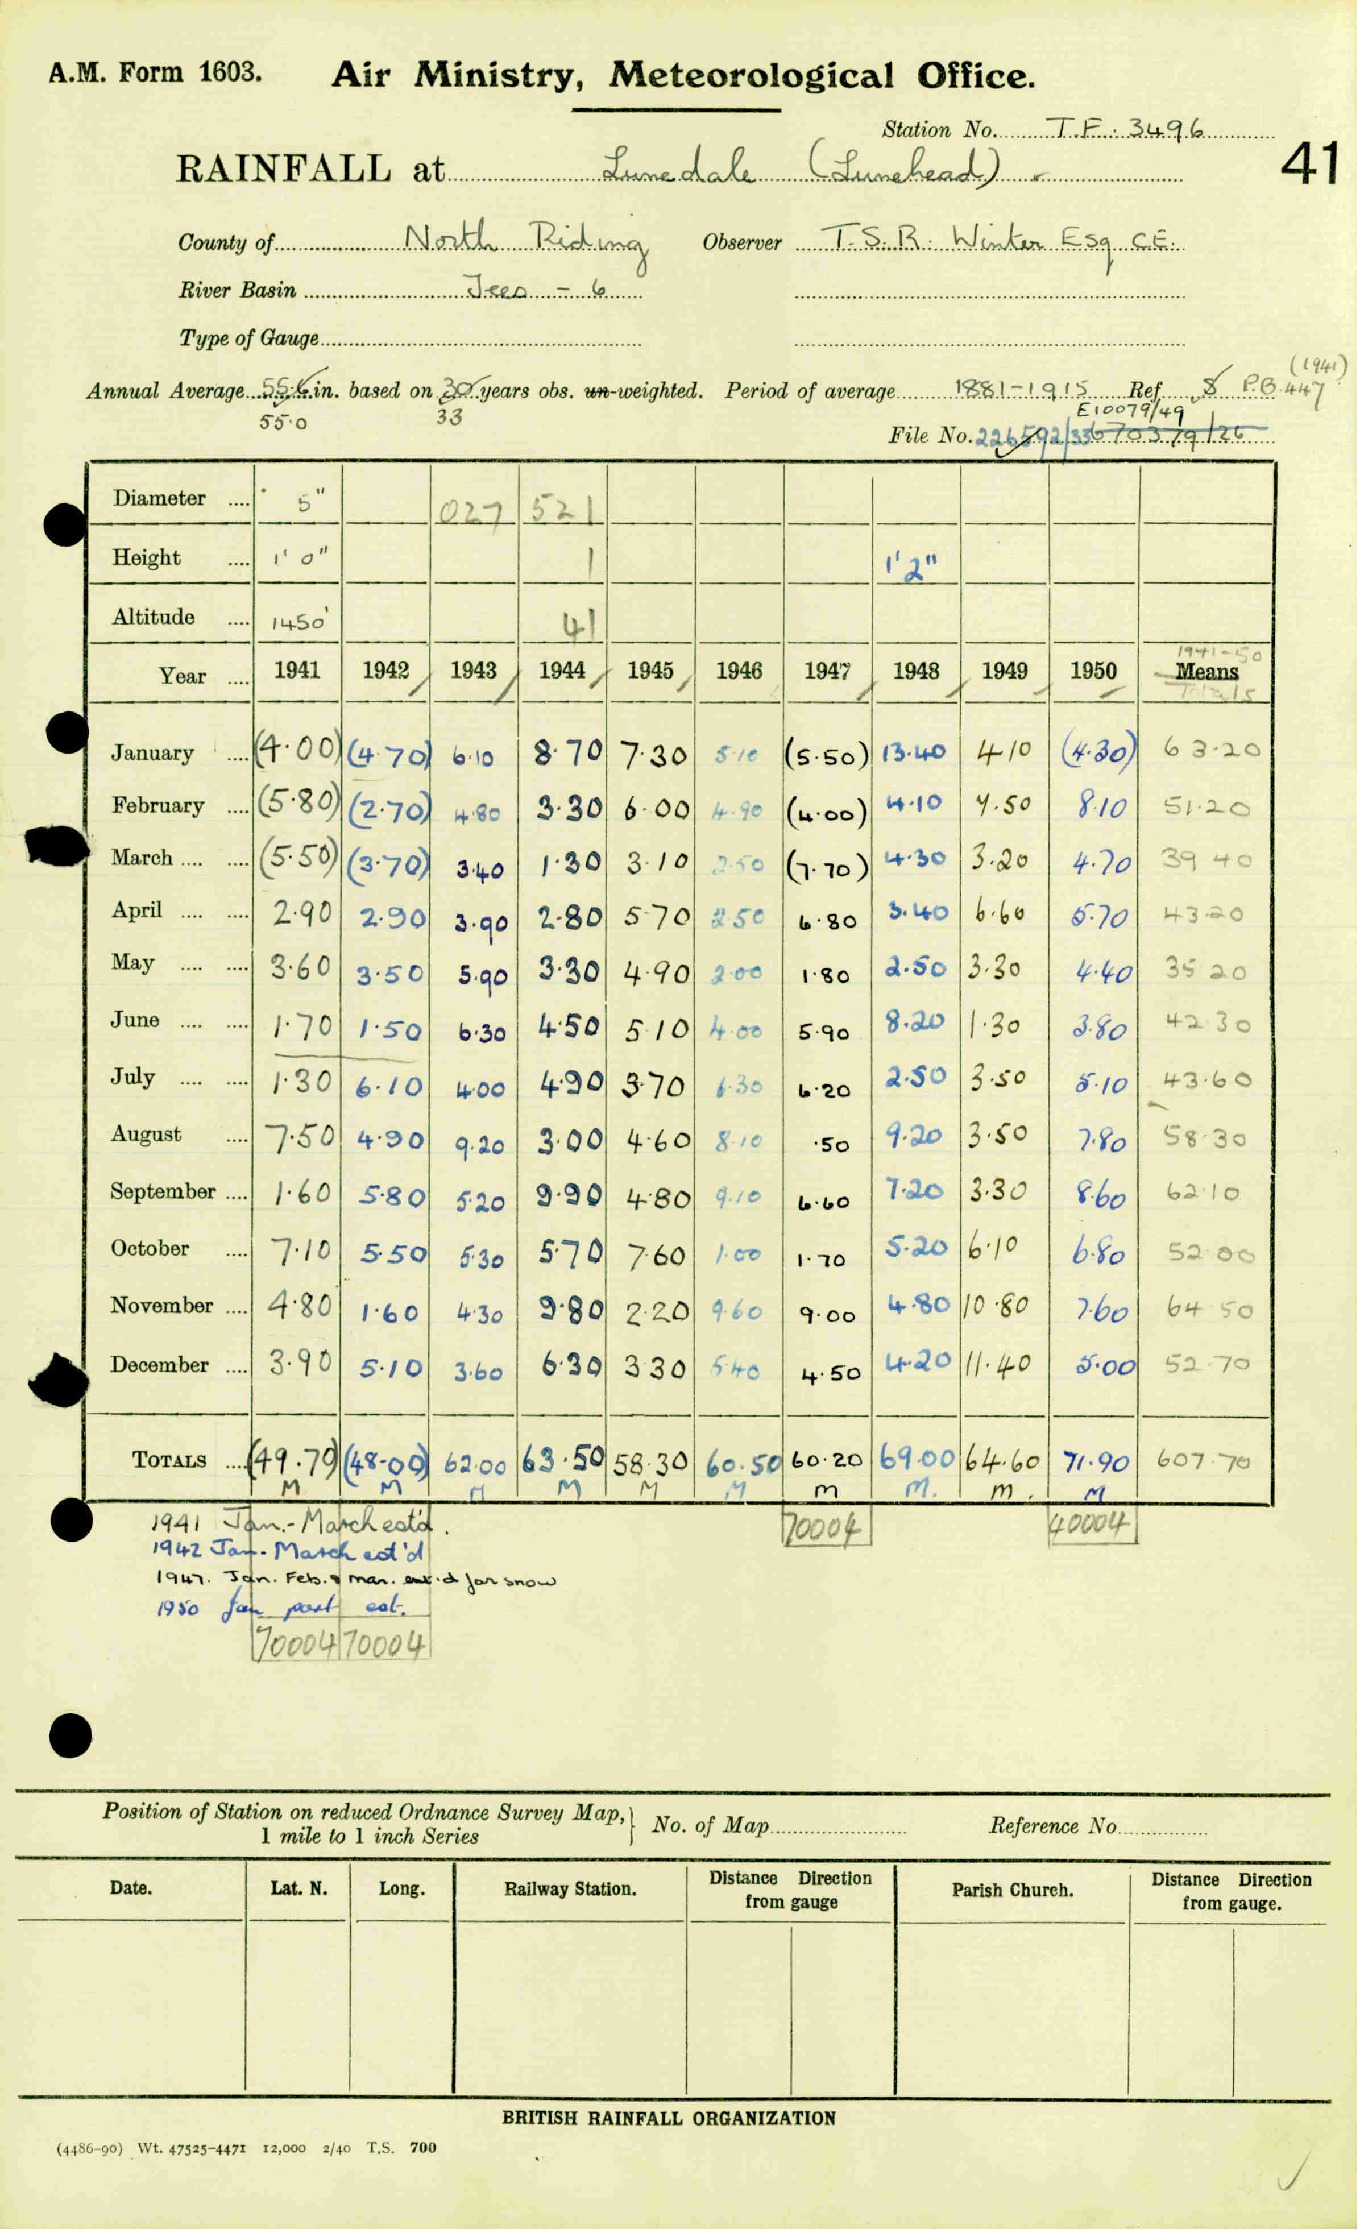 A.M. Form 1603. Air Ministry, Meteorological Office.
Station No. T.F. 3496
RAINFALL at Lunedale (Lunehead) 41
County of North Riding Observer T.S.R. Winter Esq C.E.
River Basin Tees - 6
Type of Gauge
(1941)
Annual Average 55.6 in. based on 30 years obs. un-weighted. Period of average 1881-1915 Ref. 8 P.B. 447
55.0 33 E10079/49
File No. 226592/33 670379/26
Diameter .... 5" 027 521
Height .... 1' 0" 1 1'2"
Altitude .... 1450' 41
1941-50
Year .... 1941 1942 1943 1944 1945 1946 1947 1948 1949 1950 Means
Totals
January .... (4.00) (4.70) 6.10 8.70 7.30 5.10 (5.50) 13.40 4.10 (4.30) 63.20
February .... (5.80) (2.70) 4.80 3.30 6.00 4.90 (4.00) 4.10 7.50 8.10 51.20
March .... .... (5.50) (3.70) 3.40 1.30 3.10 2.50 (7.70) 4.30 3.20 4.70 39.40
April .... .... 2.90 2.90 3.90 2.80 5.70 2.50 6.80 3.40 6.60 5.70 43.20
May .... .... 3.60 3.50 5.90 3.30 4.90 2.00 1.80 2.50 3.30 4.40 35.20
June .... .... 1.70 1.50 6.30 4.50 5.10 4.00 5.90 8.20 1.30 3.80 42.30
July .... .... 1.30 6.10 4.00 4.90 3.70 6.30 6.20 2.50 3.50 5.10 43.60
August .... 7.50 4.90 9.20 3.00 4.60 8.10 .50 9.20 3.50 7.80 58.30
September .... 1.60 5.80 5.20 9.90 4.80 9.10 6.60 7.20 3.30 8.60 62.10
October .... 7.10 5.50 5.30 5.70 7.60 1.00 1.70 5.20 6.10 6.80 52.00
November .... 4.80 1.60 4.30 9.80 2.20 9.60 9.00 4.80 10.80 7.60 64.50
December .... 3.90 5.10 3.60 6.30 3.30 5.40 4.50 4.20 11.40 5.00 52.70
TOTALS .... (49.70) (48.00) 62.00 63.50 58.30 60.50 60.20 69.00 64.60 71.90 607.70
M M M M M M m m. m. M
1941 Jan.-March est'd. 70004 40004
1942 Jan. March est'd
1947. Jan. Feb. & mar. est'd for snow
1950 Jan part est.
70004 70004
Position of Station on reduced Ordnance Survey Map,
1 mile to 1 inch Series No. of Map Reference No
Date. Lat. N. Long. Railway Station. Distance Direction from gauge Parish Church. Distance Direction from gauge.
BRITISH RAINFALL ORGANIZATION
(4486-90) Wt. 47525-4471 12,000 2/40 T.S. 700